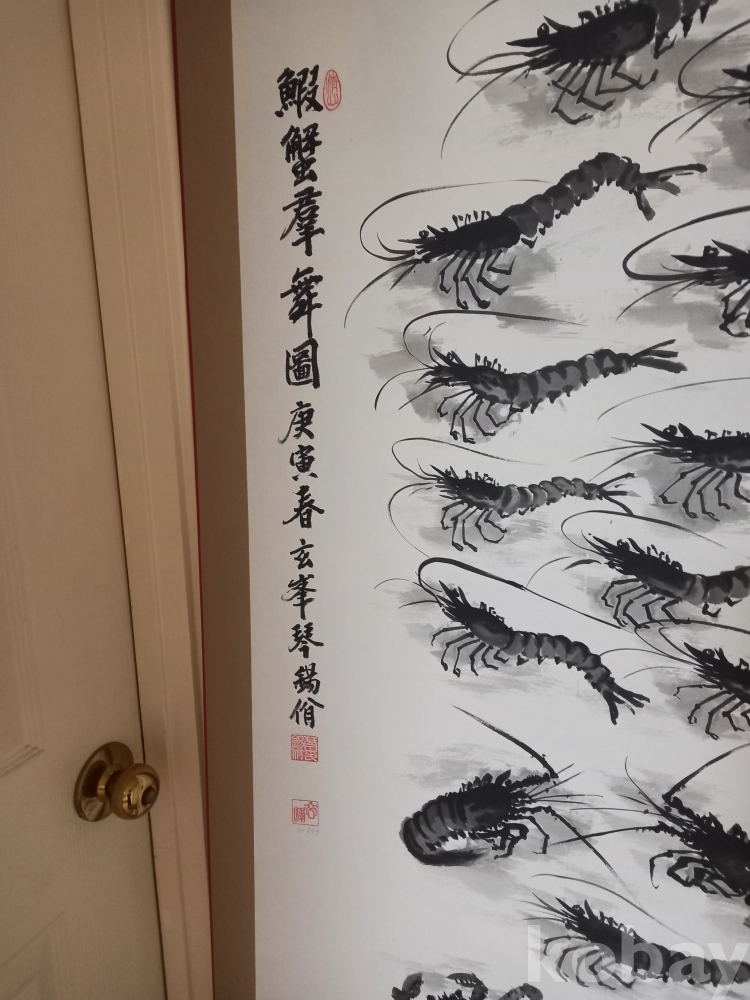 鰕蟹羣舞圖庚寅春玄峯琴錫
kobay